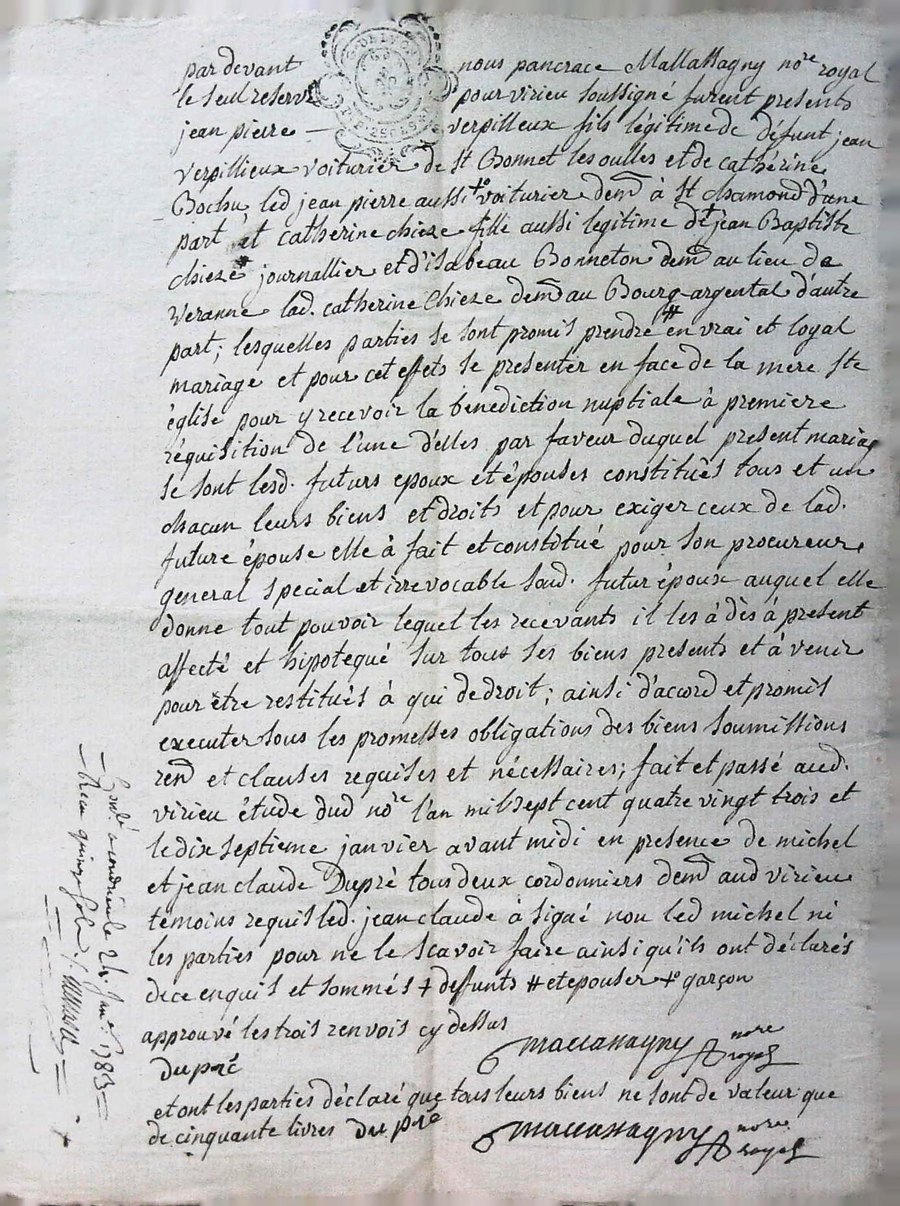 par devant nous pancrace Mallassagny no.re royal
le seul reservé pour virieu soussigné furent presents
jean pierre — verpilleux fils légitime de défunt jean
verpillieux voiturier de St Bonnet les oulles et de cathérine
Bochu led jean pierre aussi +° voiturier dem.t à St chamond d'une
part et catherine chieze fille aussi legitime de + jean Baptiste
chieze journallier et d'isabeau Bonneton dem.t au lieu de
veranne lad. catherine chieze dem.t au Bourg argental d'autre
part; lesquelles parties se sont promis prendre # en vrai et loyal
mariage et pour cet effets se presenter en face de la mere Ste
église pour y recevoir la benediction nuptiale à premiere
réquisition de l'une d'elles par faveur duquel present mariage
se sont lesd. futurs epoux et épouses constitués tous et un
chacun leurs biens et droits et pour exiger ceux de lad.
future épouse elle à fait et constitué pour son procureur
general special et irrevocable sond. futur époux auquel elle
donne tout pouvoir lequel les recevants il les à dès à present
affecté et hipotequé sur tous ses biens presents et à venir
pour être restitués à qui de droit; ainsi d'acord et promis
executer sous les promesses obligations des biens soumissions
ren.t et clauses requises et nécessaires; fait et passé aud.
virieu étude dud no.re l'an mil sept cent quatre vingt trois et
le dix septieme janvier avant midi en presence de michel
et jean claude Dupré tous deux cordonniers dem.t aud virieu
témoins requis led. jean claude à signé non led michel ni
les parties pour ne le scavoir faire ainsi qu'ils ont déclarés
de ce enquis et sommés + deffunts # et epouser +° garçon
approuvé les trois renvois cy dessus
dupré
mallassagny nore royal
et ont les parties déclaré que tous leurs biens ne sont de valeur que
de cinquante livres dupré
mallassagny nore royal
à condrieu le 24 Janv. 1783
Reçu quinze sols